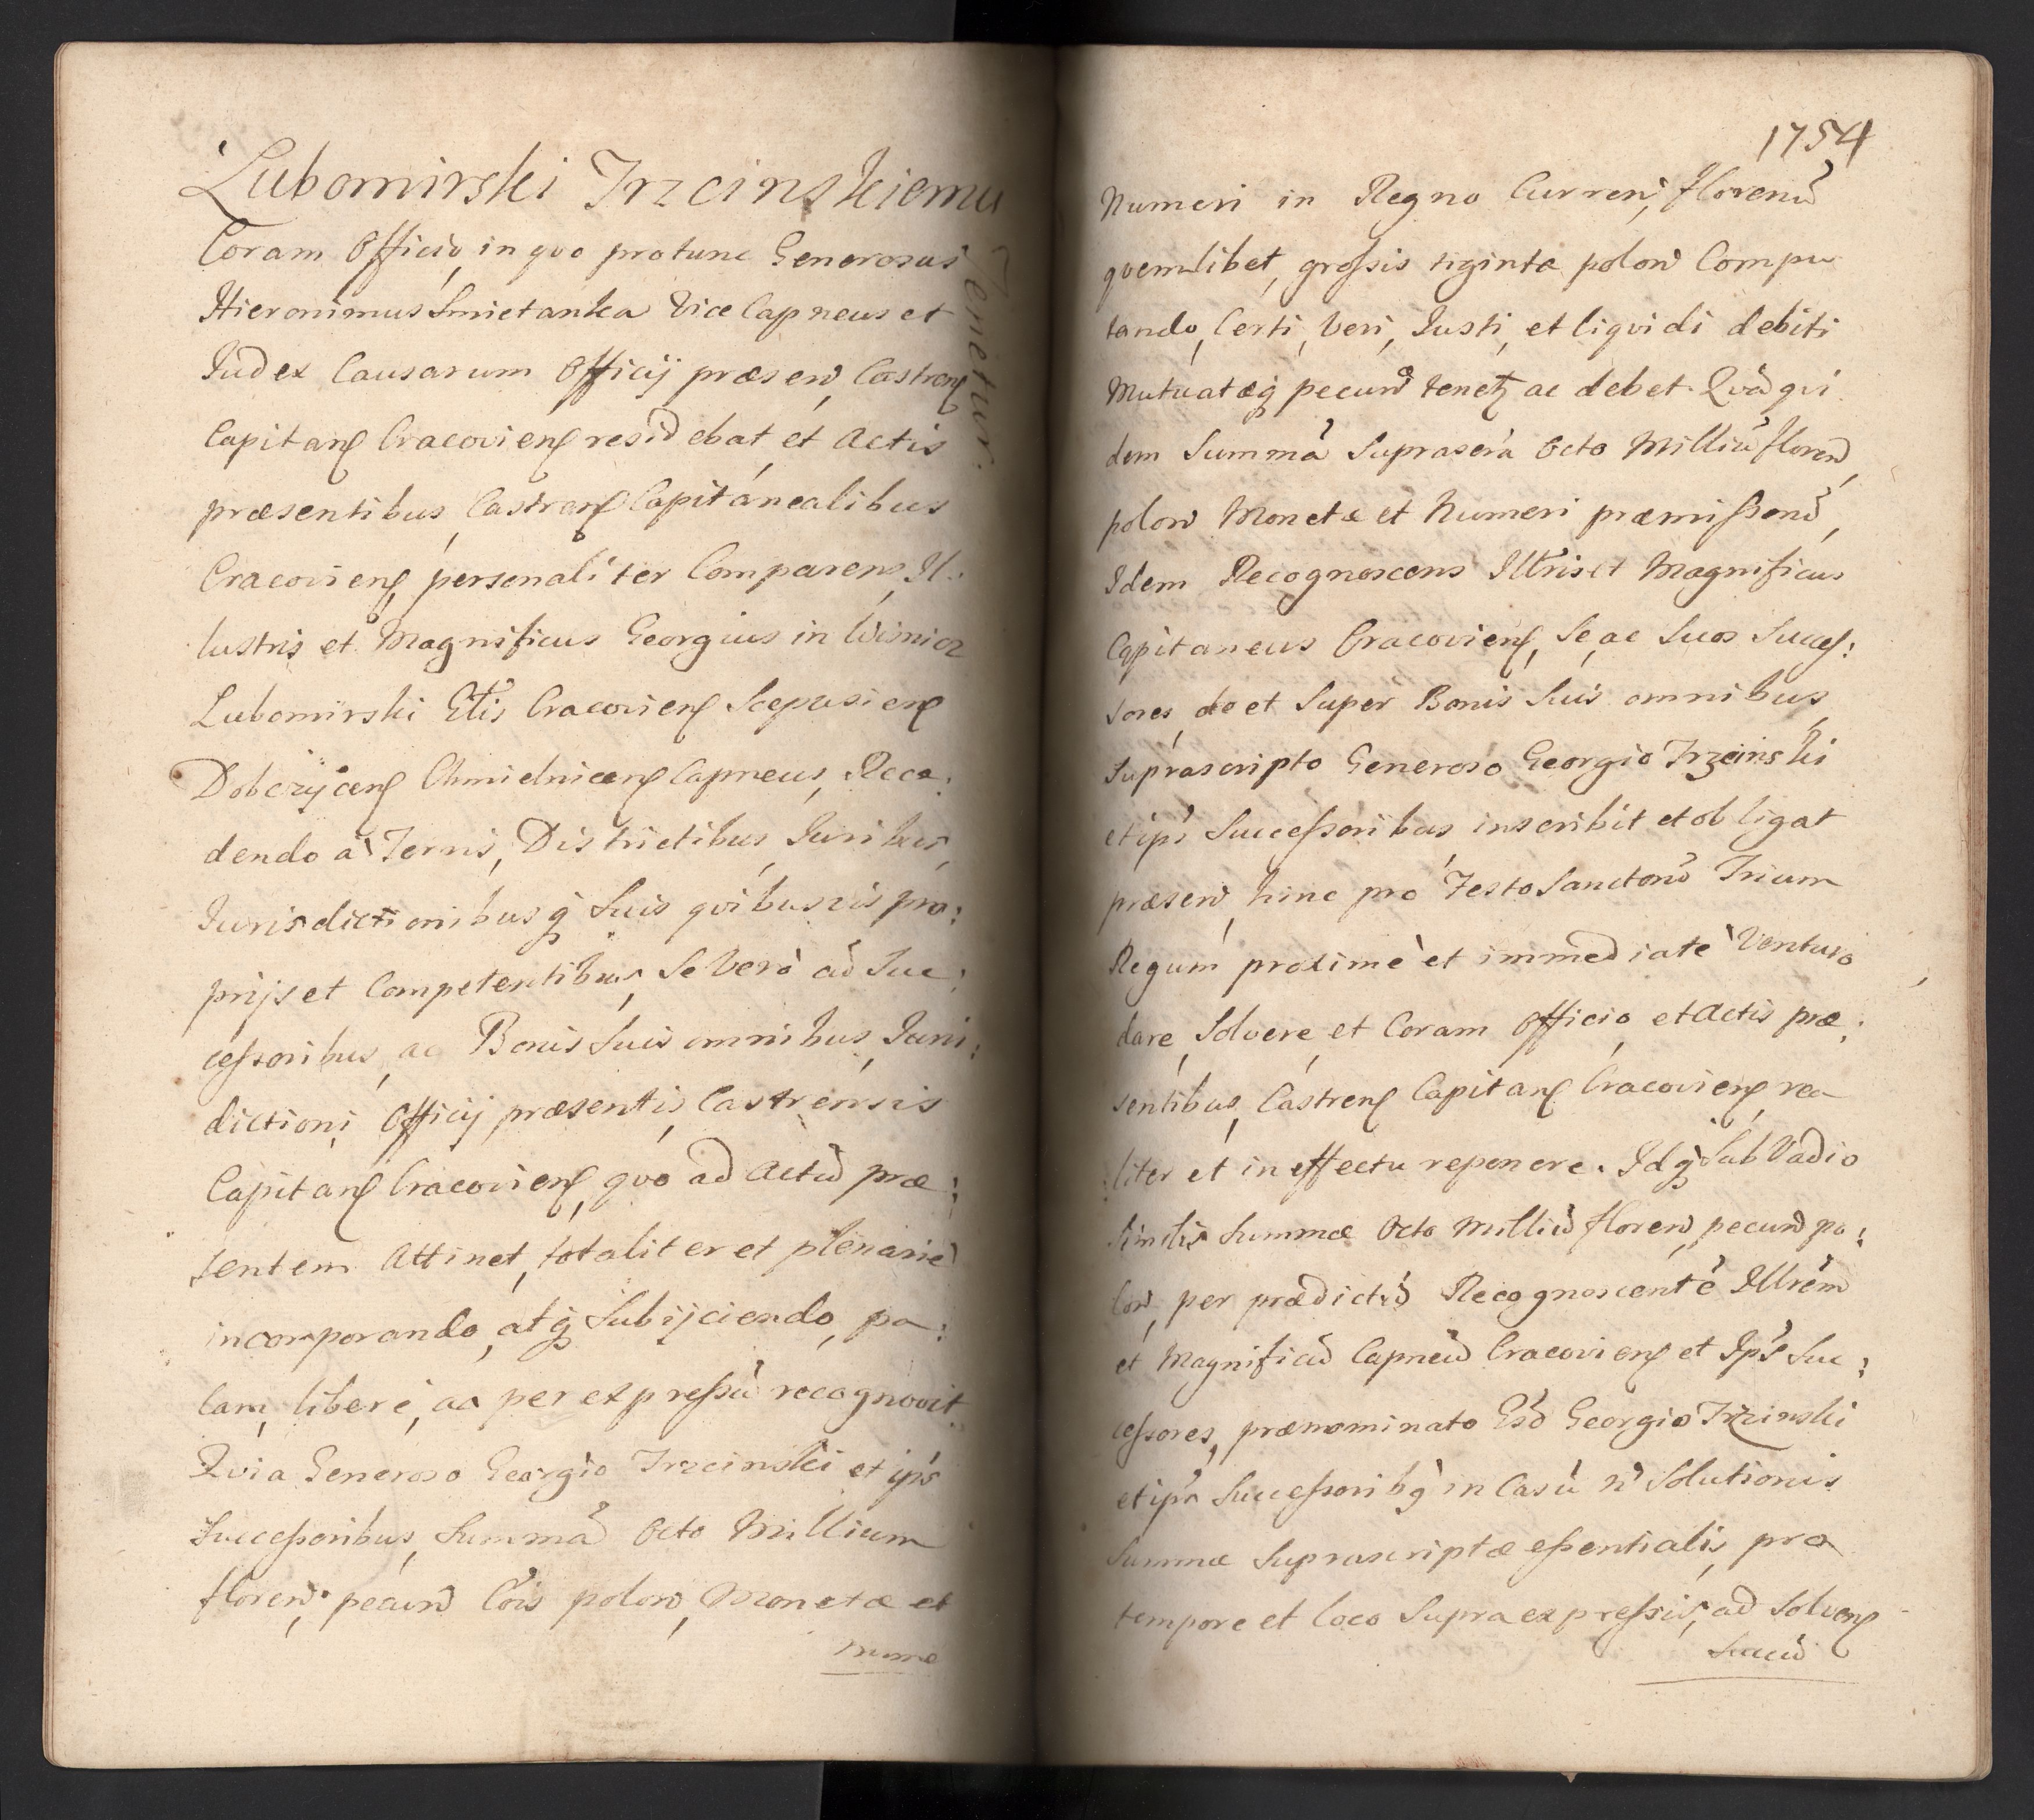 Lubomirski Trzcinskiemu
Tenetur.
Coram Officio, in quo protunc Generosus
Hieronimus Smietanka Vice Capneus et
Iudex Causarum Officij præsen, Castren
Capitan Cracovien residebat et Actis
præsentibus, Castren Capitanealibus
Cracovien, personaliter Comparens, Il:
lustris et Magnificus Georgius in Wisnicz
Lubomirski Etis Cracovien Scepusien
Dobczijcen Chmielnicen Capneus, Rece:
dendo à Terris, Districtibus, Iuribus,
Iurisdictionibusq Suis quibusvis pro:
prijs et Competentibus, Se Vero ad Suc:
cessoribus, ac Bonis Suis omnibus, Iuris:
dictioni Officij præsentis, Castrensis
Capitan Cracovien, quo ad Actum præ:
sentem Attinet, totaliter et plenarie
incorporando, atq Subijciendo, pa:
lam, libere, ac per expressu recognovit
Quia Generoso Georgio Trzcinski et ips
Successoribus, Summa Octo Millium
floren, pecun Cois polon, Monetæ et
nume
1754
Numeri in Regno Curren, florenu
quemlibet, grossis triginta polon Compu
tando, Certi, Veri, Iusti, et liquidi debiti
Mutuatæq pecun tenet ac debet. Qva qvi
dem Summa Suprascra Octo Milliu floren
polon Monetæ et Numeri præmissoru,
Idem Recognoscens Illris et Magnificus
Capitaneus Cracovien, Se, ac Suos Succes:
sores, de et Super Bonis Suis omnibus
Suprascripto Generoso Georgio Trzcinski
et ips Successoribus inscribit et obligat
præsen, hinc pro Festo Sanctoru Trium
Regum proximè et immediatè Venturo
dare, Solvere, et Coram Officio, et Actis præ:
sentibus, Castren Capitan Cracovien rea
liter et in effectu reponere. Idq Sub Vadio
Similis Summæ Octo Milliu floren, pecun po:
lon, per prædictu Recognoscente Illrem
et Magnificu Capneu Cracovien et Ips Suc:
cessores, prænominato Gso Georgio Trzcinski
et ips Successoribq in Casu n Solutionis
Summæ Suprascriptæ essentialis, pro
tempore et loco Supra expressis, ad Solven
Succu